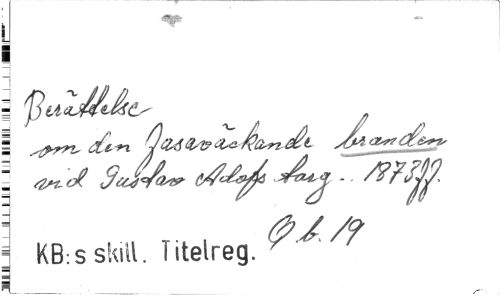 Berättelse
om den fasaväckande branden
vid Gustav Adofs torg .. 1873
O b. 19
KB:s skill. Titelreg.